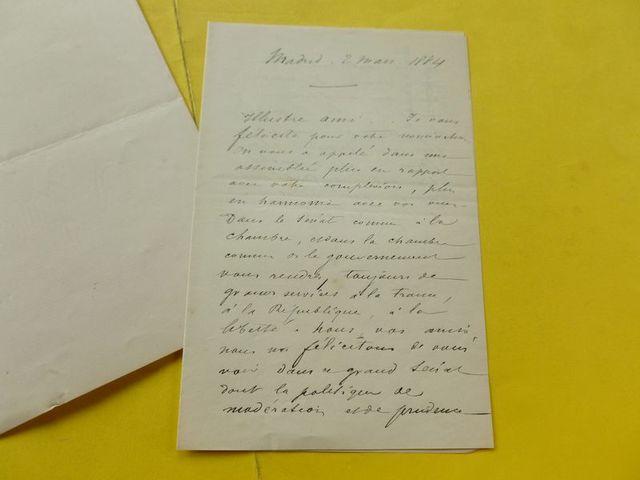 Madrid. 2 mars 1884
Illustre ami. Je vous
félicite pour votre nomination.
On vous a appelé dans une
assemblée plus en rapport
avec votre complexion, plus
en harmonie avec vos vues.
Dans le Sénat comme à la
chambre, et dans la chambre
comme le gouvernement
vous rendrez toujours de
grands services à la France,
à la République, à la
liberté. Nous, vos amis
nous nos félicitons de vous
voir dans ce grand Sénat
dont la politique de
modération et de prudence